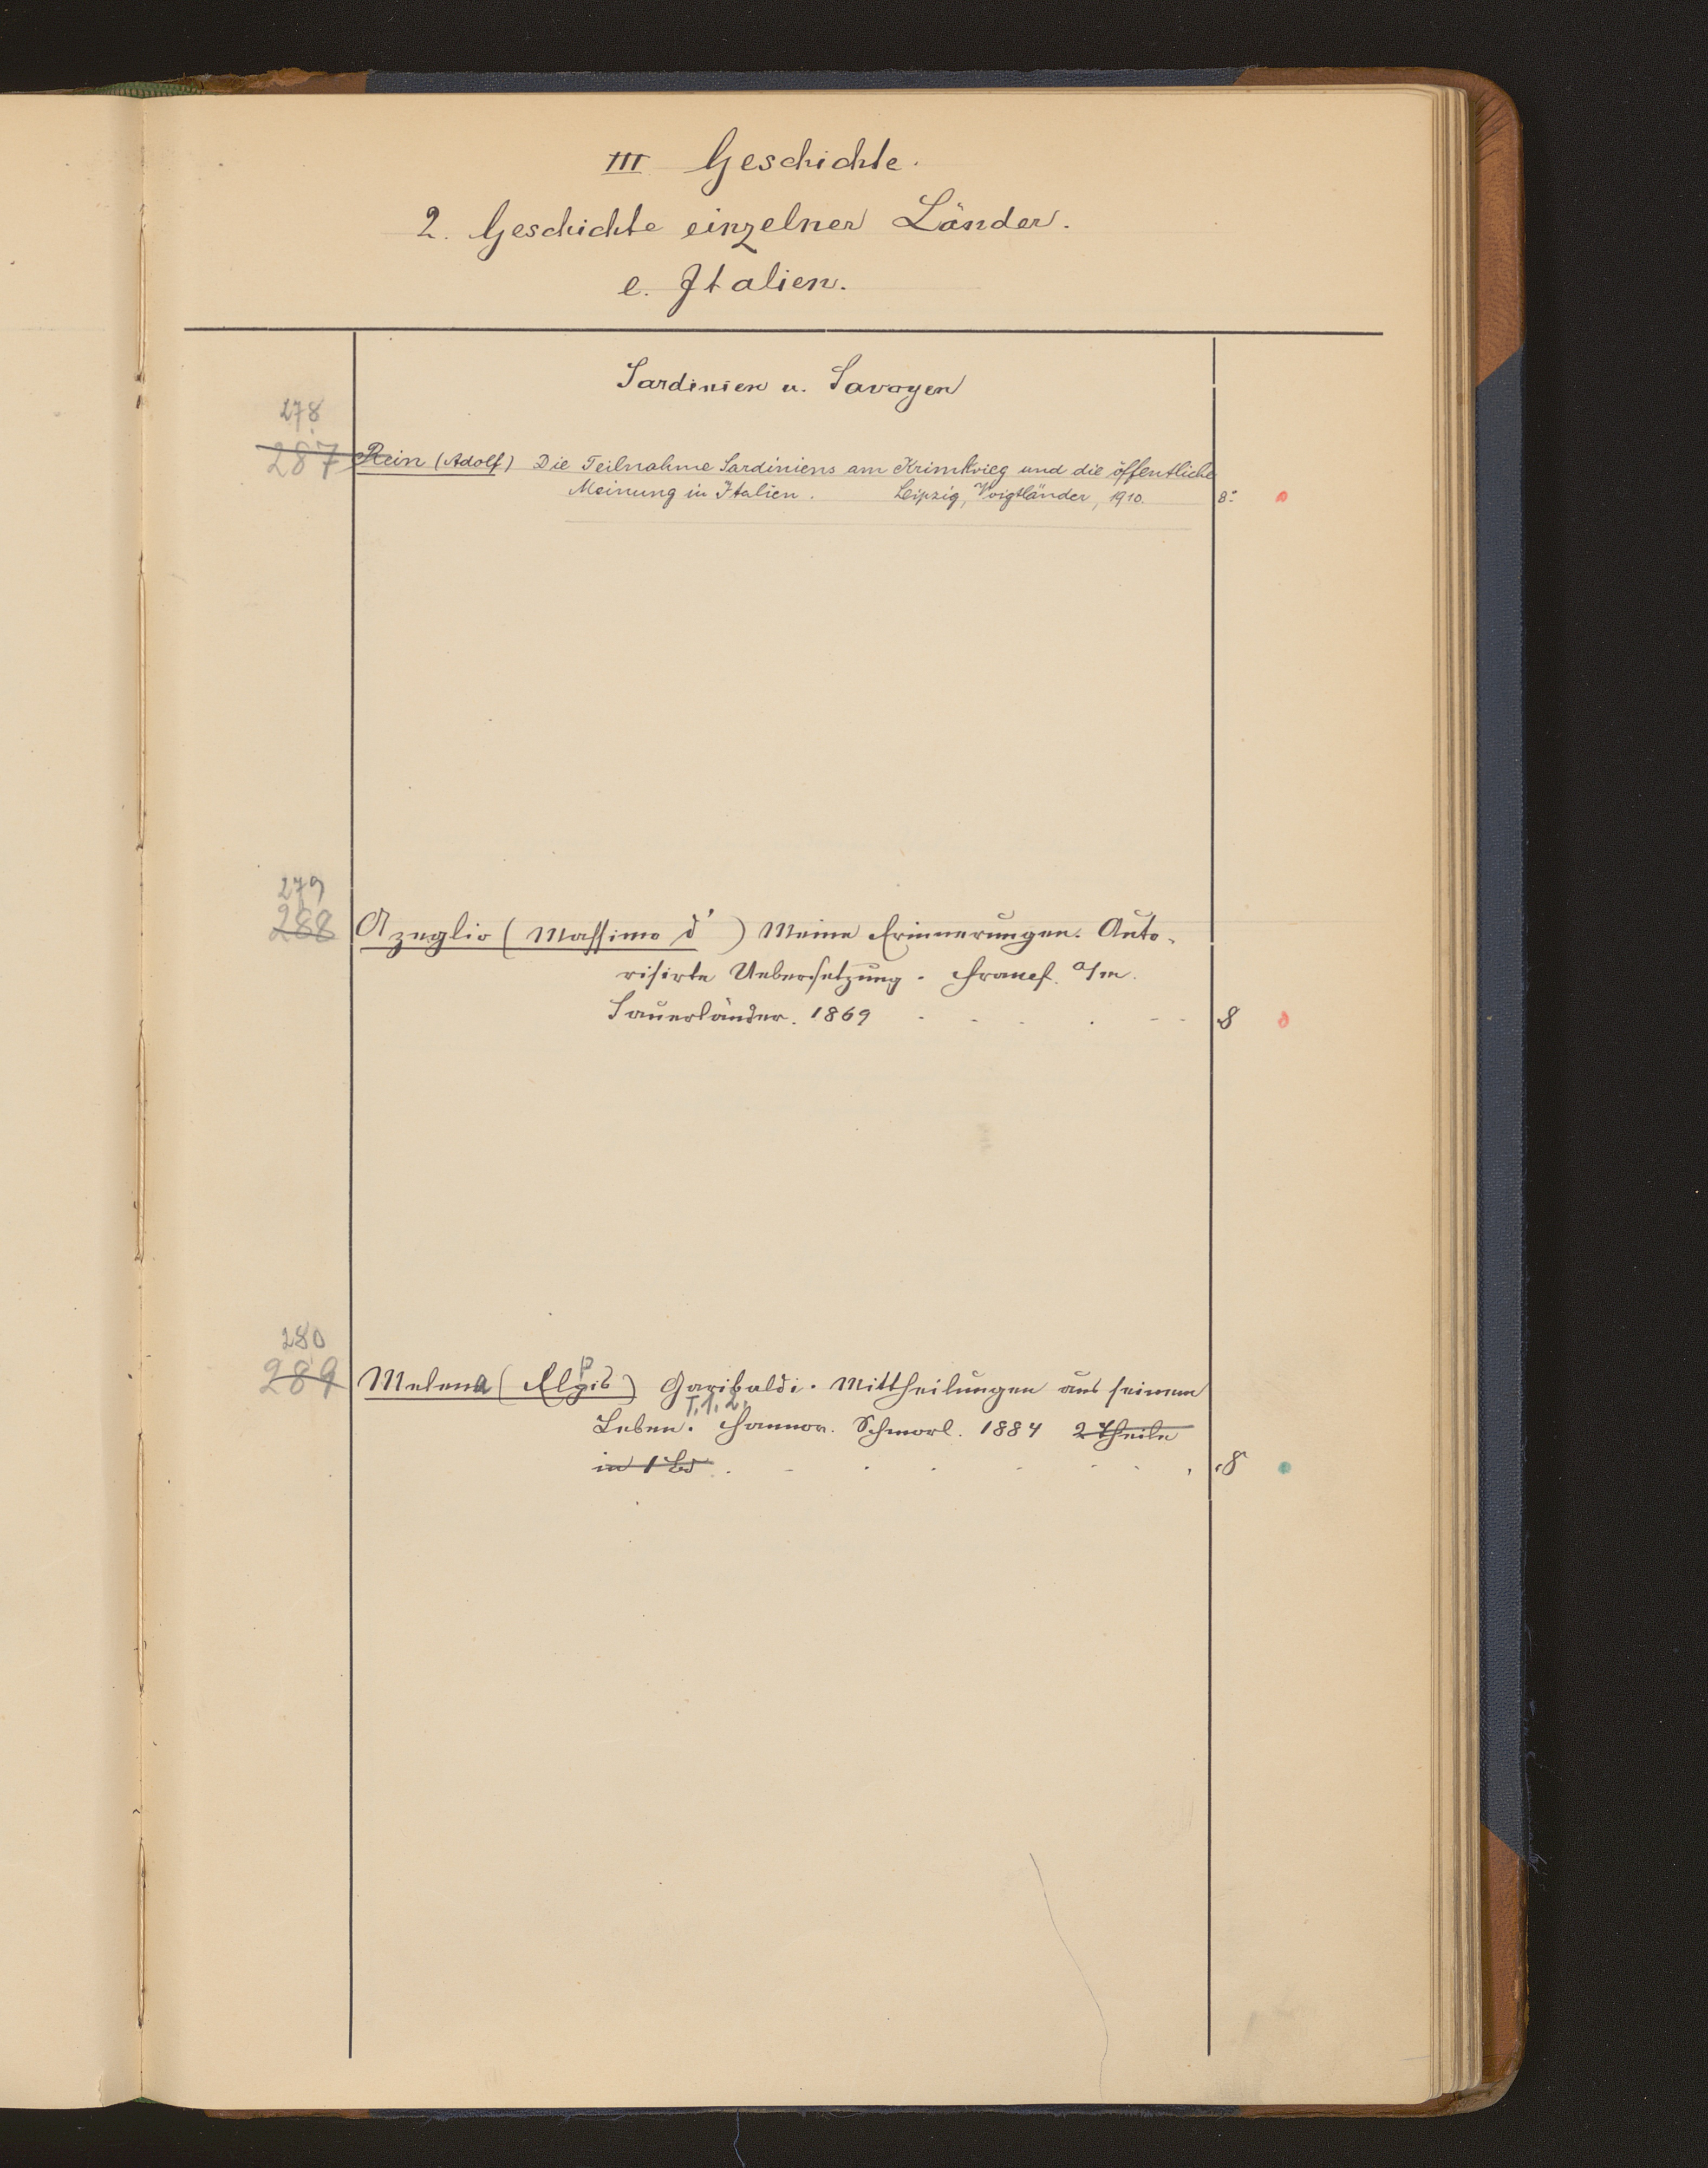 III Geschichte.
2. Geschichte einzelner Länder.
e. Italien.
Sardinien u. Savoyen
278
287 Rein (Adolf) Die Teilnahme Sardiniens am Krimkrieg und die öffentliche
Meinung in Italien. Leipzig, Voigtländer, 1910. 8°
279
288 Azeglio (Massimo d') Meine Erinnerungen. Auto-
risirte Uebersetzung. Francf. a/m.
Sauerländer. 1869 8
280
289 Melena (Elpis) Garibaldi. Mittheilungen aus seinem
T. 1. 2.
Leben. Hannov. Schmorl. 1884 2 Theile
in 1 Bd 8